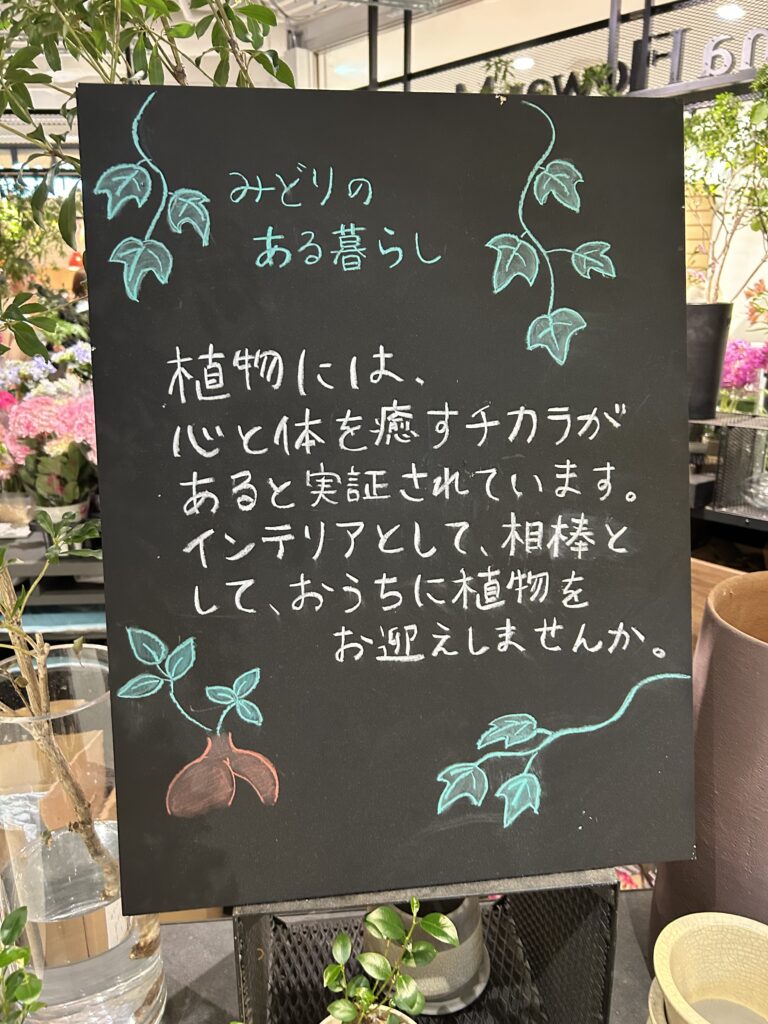 みどりの
ある暮らし
植物には、
心と体を癒すチカラが
あると実証されています。
インテリアとして、相棒と
して、おうちに植物を
お迎えしませんか。